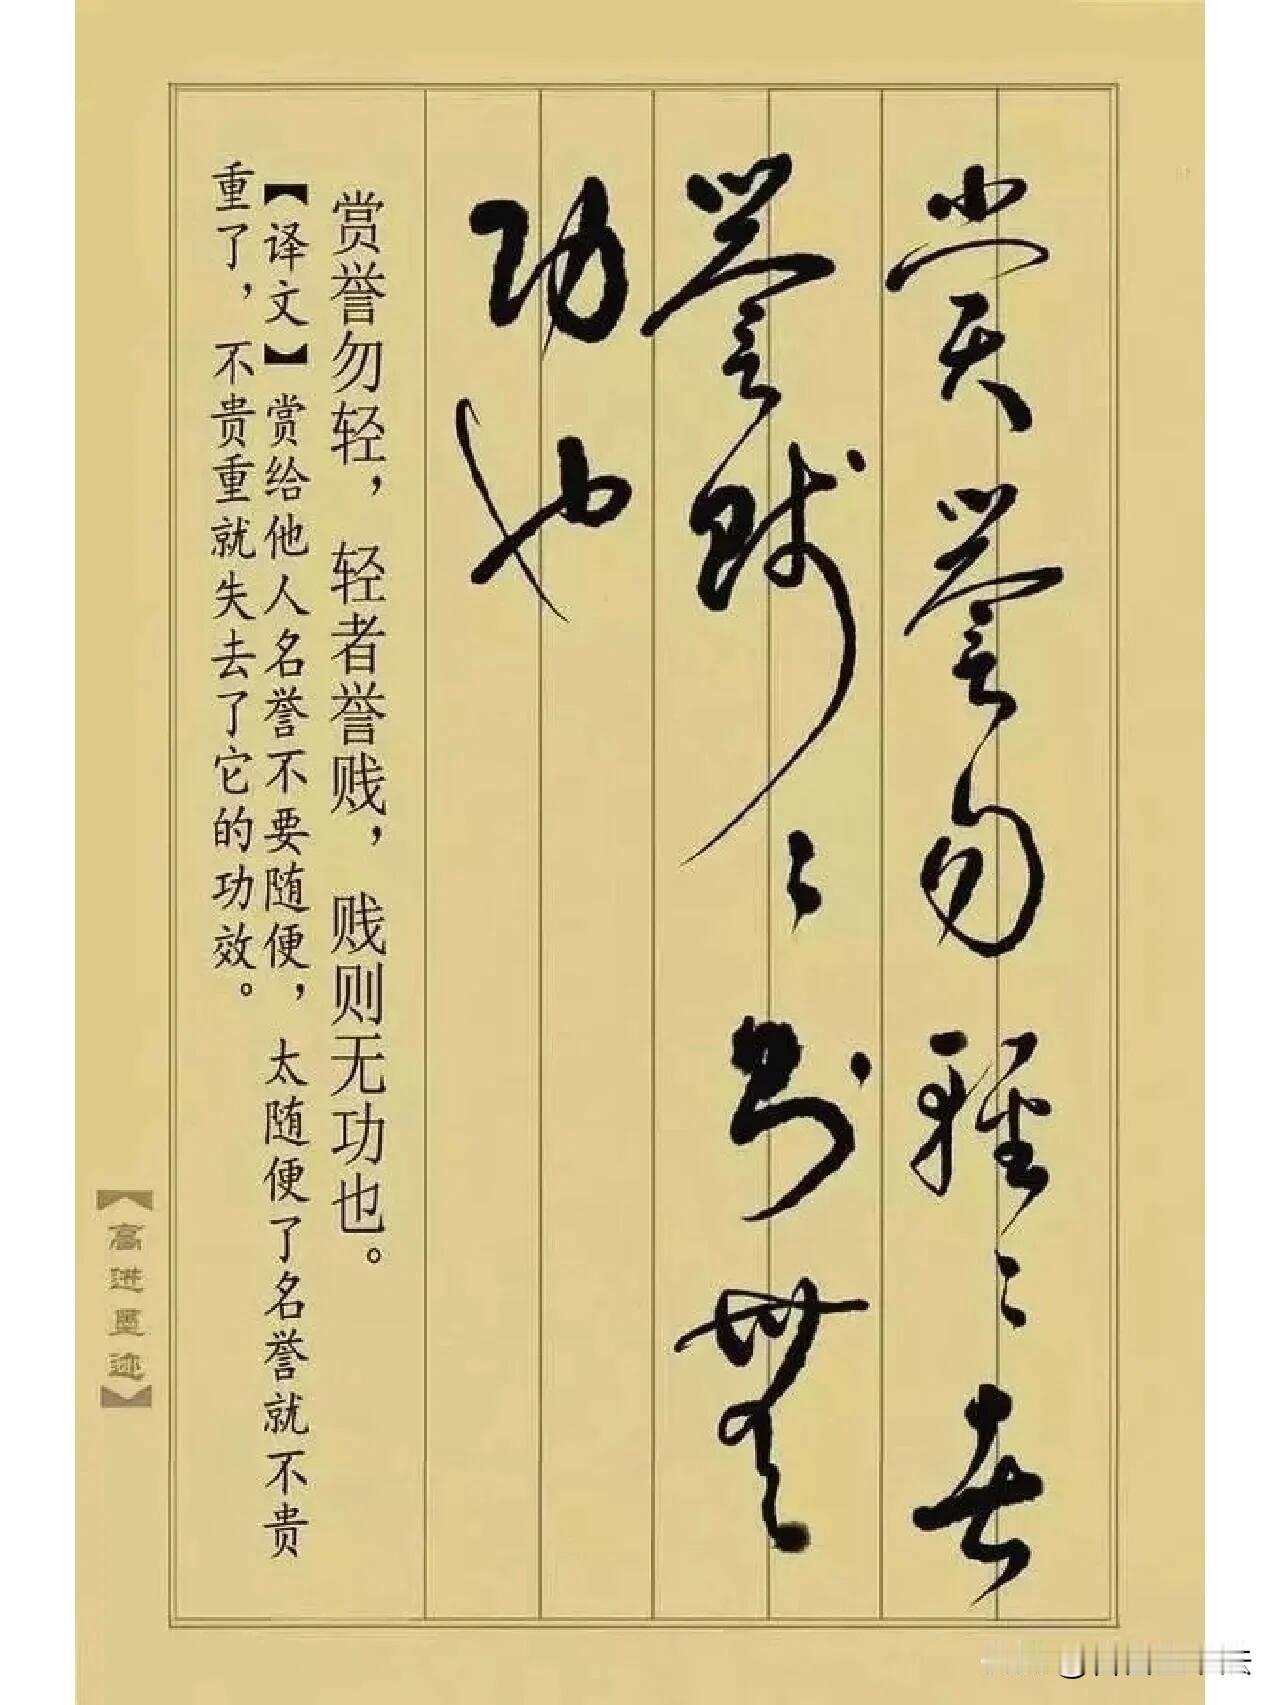 赏誉勿轻〻者
誉贱〻则无
功也
赏誉勿轻，轻者誉贱，贱则无功也。
【译文】赏给他人名誉不要随便，太随便了名誉就不贵
重了，不贵重就失去了它的功效。
【高进墨迹】